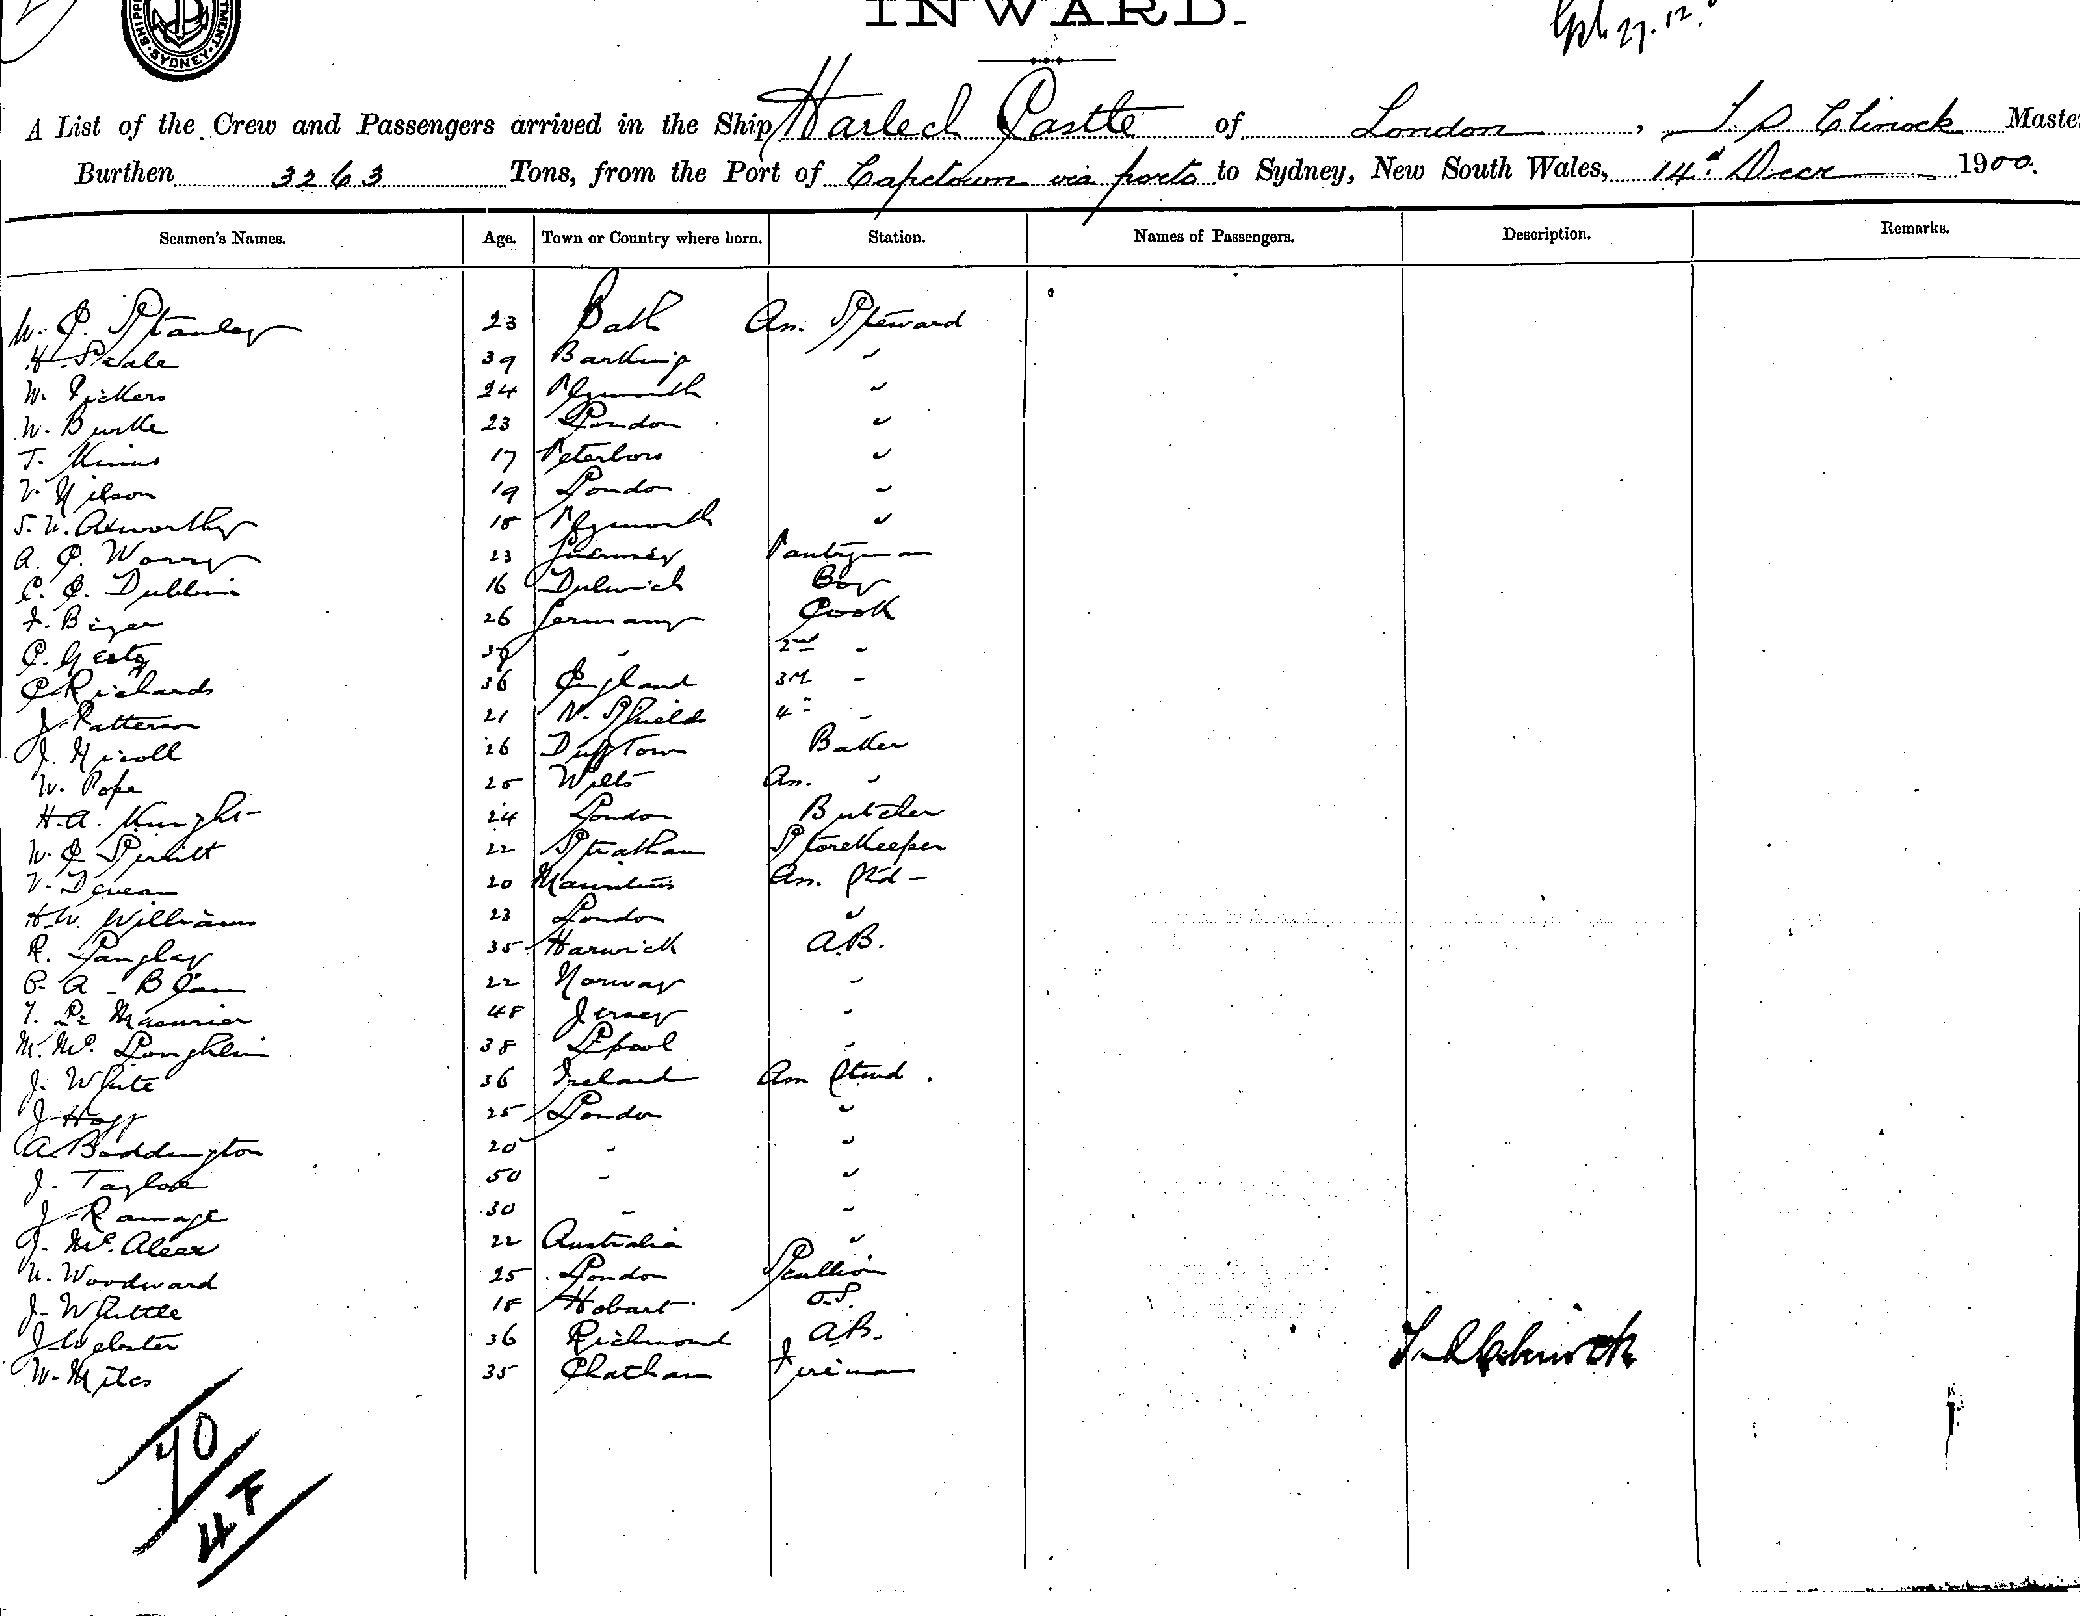 INWARD.
A List of the Crew and Passengers arrived in the Ship Harlech Castle of London, Master
Burthen 3263 Tons, from the Port of Capetown via ports to Sydney, New South Wales, 14th Decr 1900.
Seamen's Names. Age. Town or Country where born. Station. Names of Passengers. Description. Remarks.
W. C. Stanley 23 Bath As. Steward
H. Seale 39 Barking "
W. Vickers 24 Plymouth "
W. Burke 23 London "
T. 17 Peterboro "
V. Nilson 19 London "
S. W. Axworthy 18 Plymouth "
A. E. Worry 23 Guernsey Pantryman
C. E. Dubbin 16 Dulwich Boy
F. 26 Germany Cook
C. 2nd "
C Richards 36 England 3rd "
J. Patterson 21 N. Shields 4th "
J. Nicoll 26 Dufftown Baker
W. Pope 25 Wilts As. "
H. A. Knight 24 London Butcher
W. E 22 Streatham Storekeeper
V. 20 Mauritius As. Std
H. W. Williams 23 London "
R. Langley 35 Harwick A.B.
22 Norway "
Le Masurier 48 Jersey "
M. Mc. Loughlin 38 L'pool "
J. White 36 Ireland As Stwd.
J. Hogg 25 London "
A Baddington 20 " "
J. Taylor 50 " "
J. Ramage 30 " "
J. Mc. Aleer 22 Australia "
W. Woodward 25 London Scullion
J. Whittle 18 Hobart O.S.
J. Webster 36 Richmond A.B.
W. Miles 35 Chatham Fireman